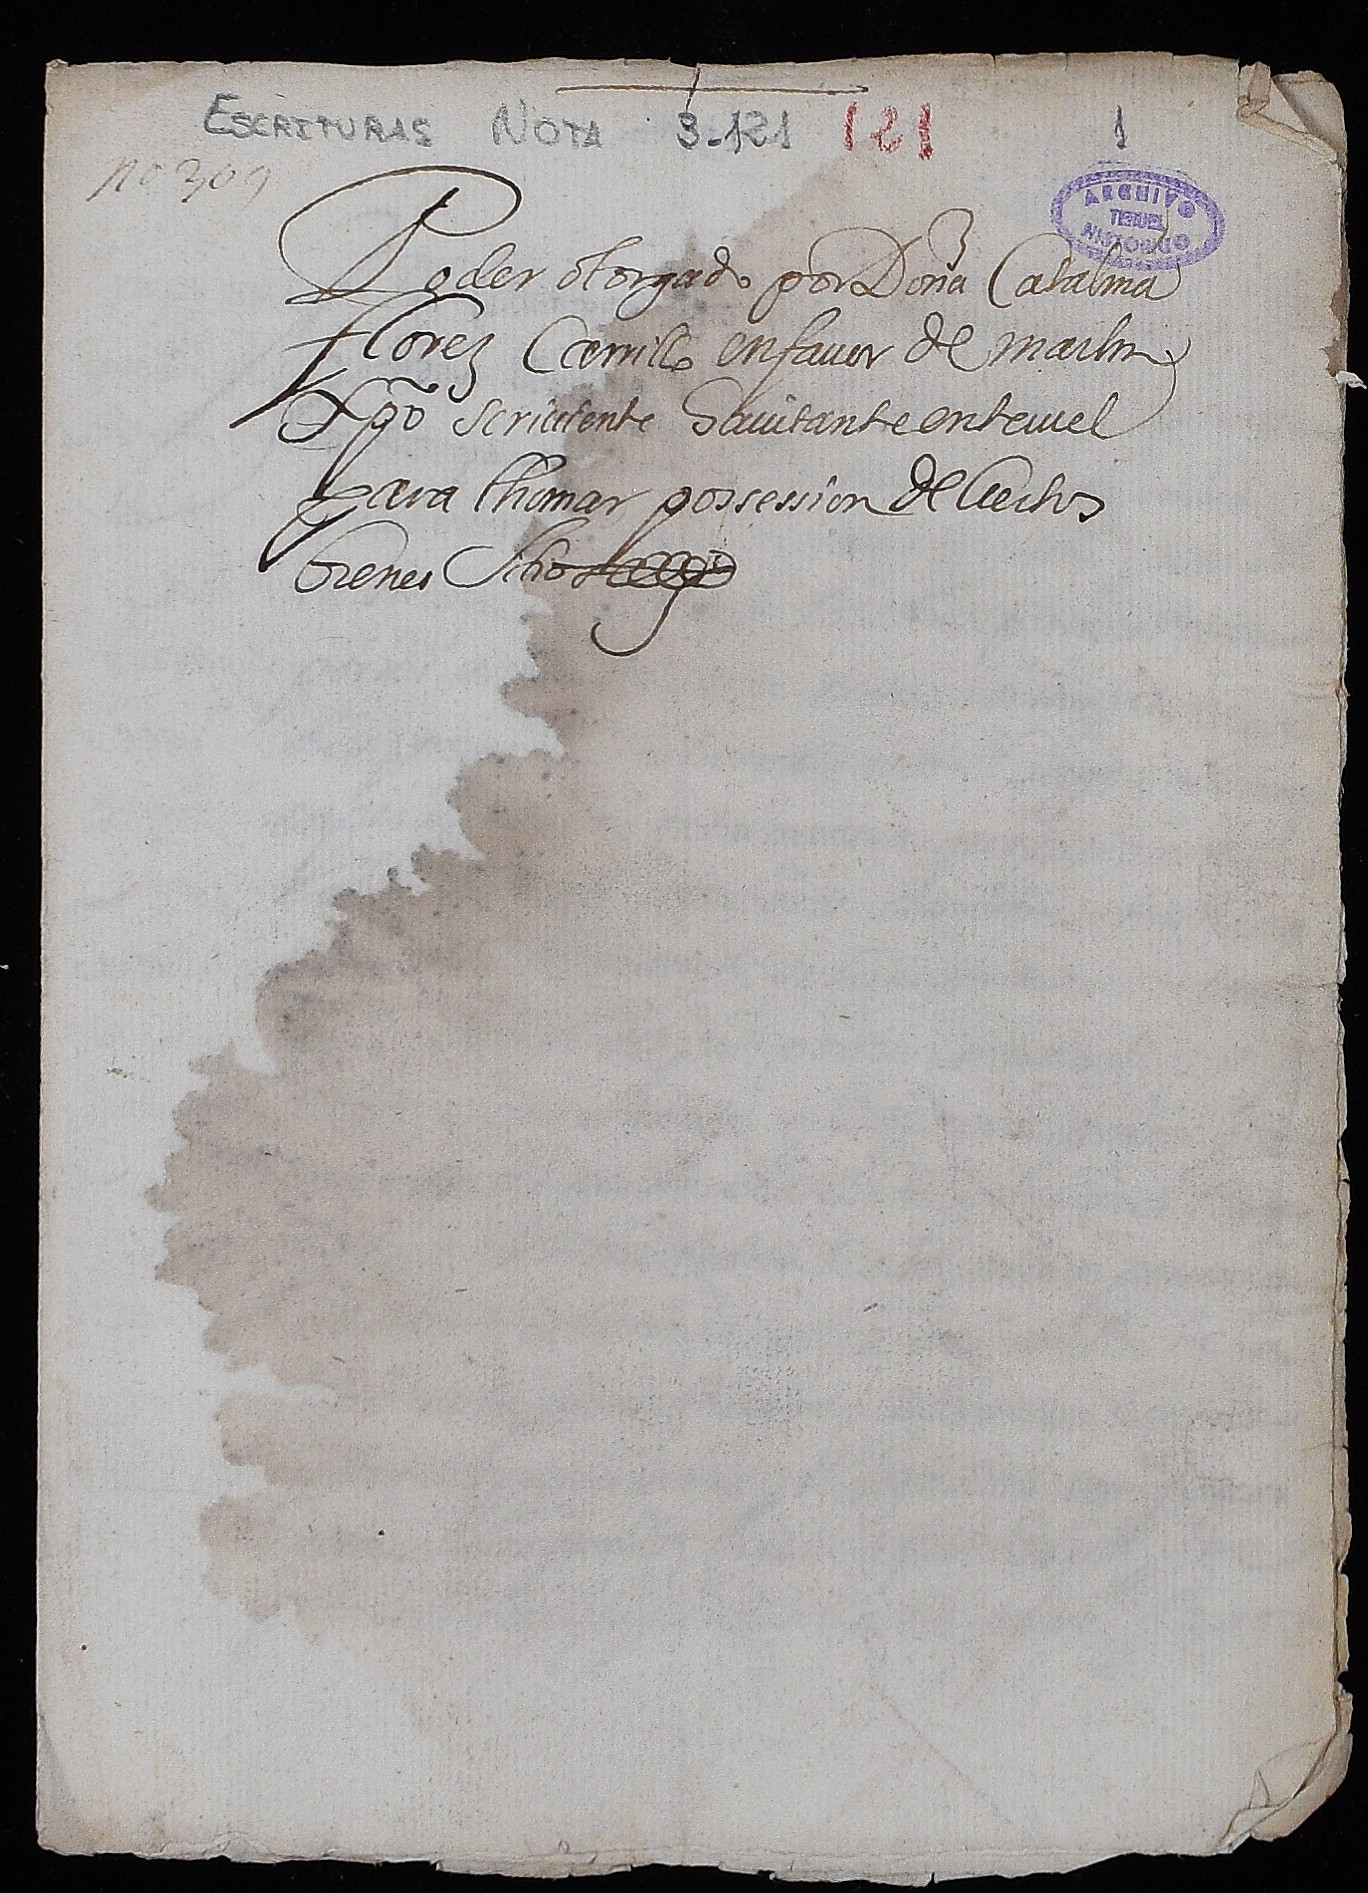 ESCRITURAS NOTA 3-121 121 1
nº 309
ARCHIVO
TERUEL
HISTORICO
Poder otorgado por Doña Catalina
Florez Carrillo en fauor de martin
Xpõ scriuiente hauitante en teruel
para thomar possession de Ciertos
bienes sitios